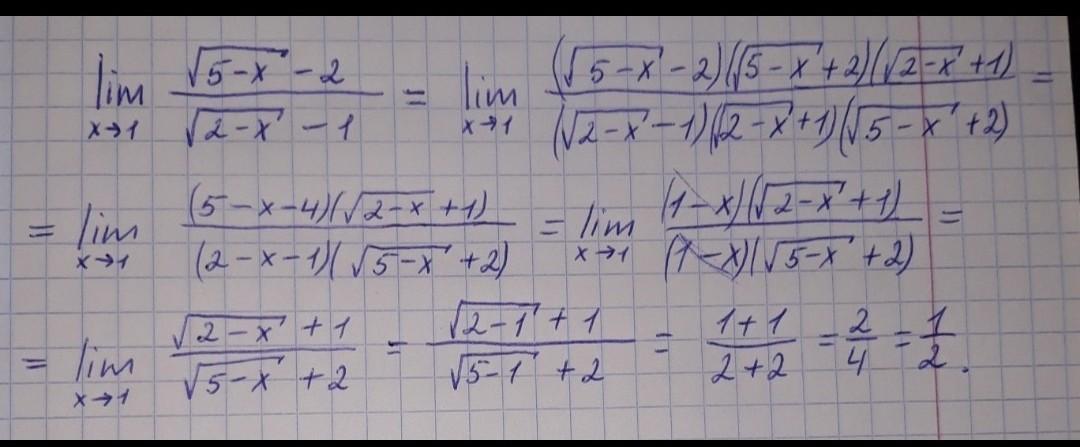 lim x→1 (√(5-x) - 2)/(√(2-x) - 1) = lim x→1 ((√(5-x) - 2)(√(5-x) + 2)(√(2-x) + 1))/((√(2-x) - 1)(√(2-x) + 1)(√(5-x) + 2)) =
= lim x→1 ((5-x-4)(√(2-x) + 1))/((2-x-1)(√(5-x) + 2)) = lim x→1 ((1-x)(√(2-x) + 1))/((1-x)(√(5-x) + 2)) =
= lim x→1 (√(2-x) + 1)/(√(5-x) + 2) = (√(2-1) + 1)/(√(5-1) + 2) = (1+1)/(2+2) = 2/4 = 1/2.